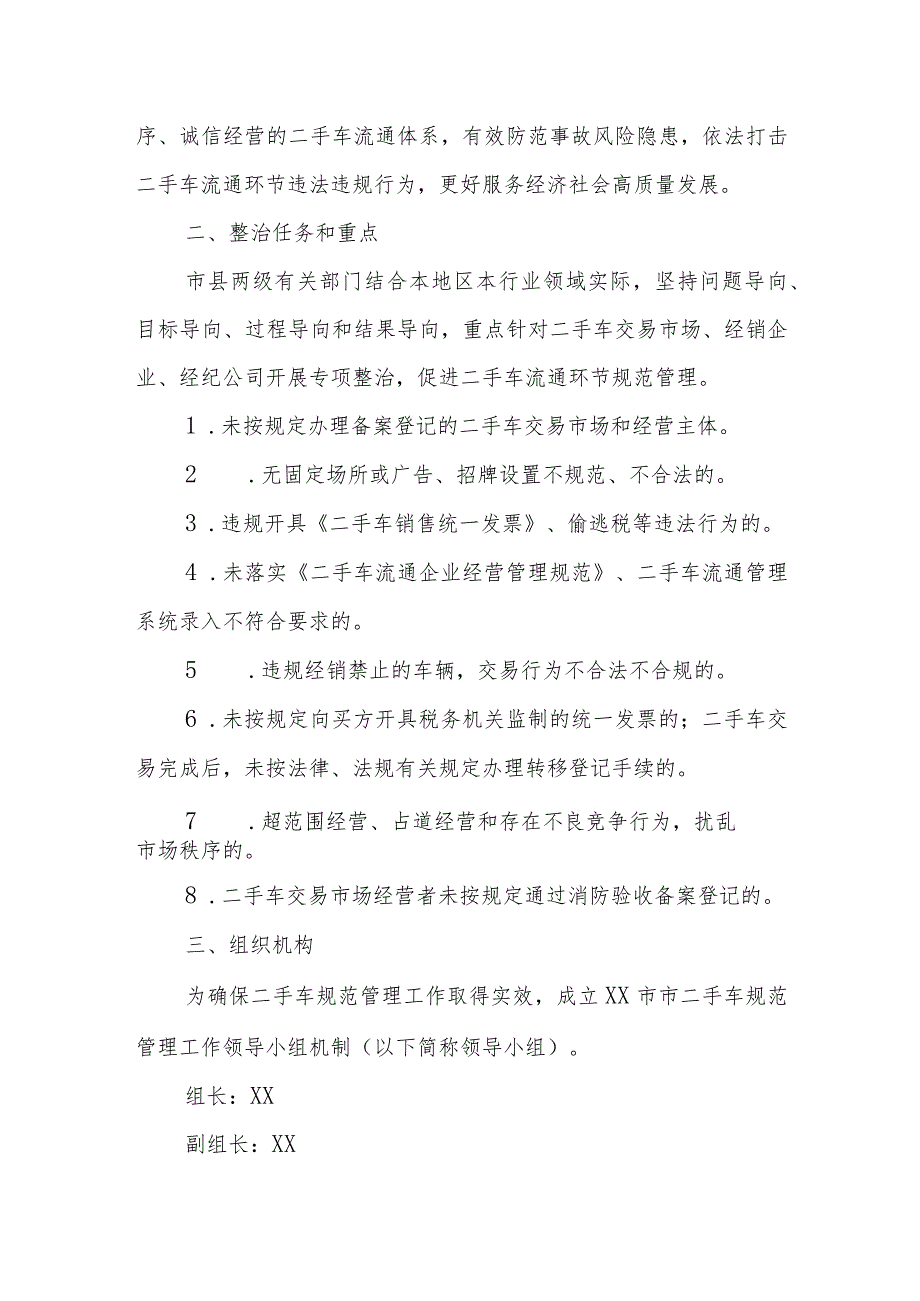 序、诚信经营的二手车流通体系，有效防范事故风险隐患，依法打击
二手车流通环节违法违规行为，更好服务经济社会高质量发展。
二、整治任务和重点
市县两级有关部门结合本地区本行业领域实际，坚持问题导向、
目标导向、过程导向和结果导向，重点针对二手车交易市场、经销企
业、经纪公司开展专项整治，促进二手车流通环节规范管理。
1 .未按规定办理备案登记的二手车交易市场和经营主体。
2 .无固定场所或广告、招牌设置不规范、不合法的。
3 .违规开具《二手车销售统一发票》、偷逃税等违法行为的。
4 .未落实《二手车流通企业经营管理规范》、二手车流通管理
系统录入不符合要求的。
5 .违规经销禁止的车辆，交易行为不合法不合规的。
6 .未按规定向买方开具税务机关监制的统一发票的；二手车交
易完成后，未按法律、法规有关规定办理转移登记手续的。
7 .超范围经营、占道经营和存在不良竞争行为，扰乱
市场秩序的。
8 .二手车交易市场经营者未按规定通过消防验收备案登记的。
三、组织机构
为确保二手车规范管理工作取得实效，成立XX市市二手车规范
管理工作领导小组机制（以下简称领导小组）。
组长：XX
副组长：XX